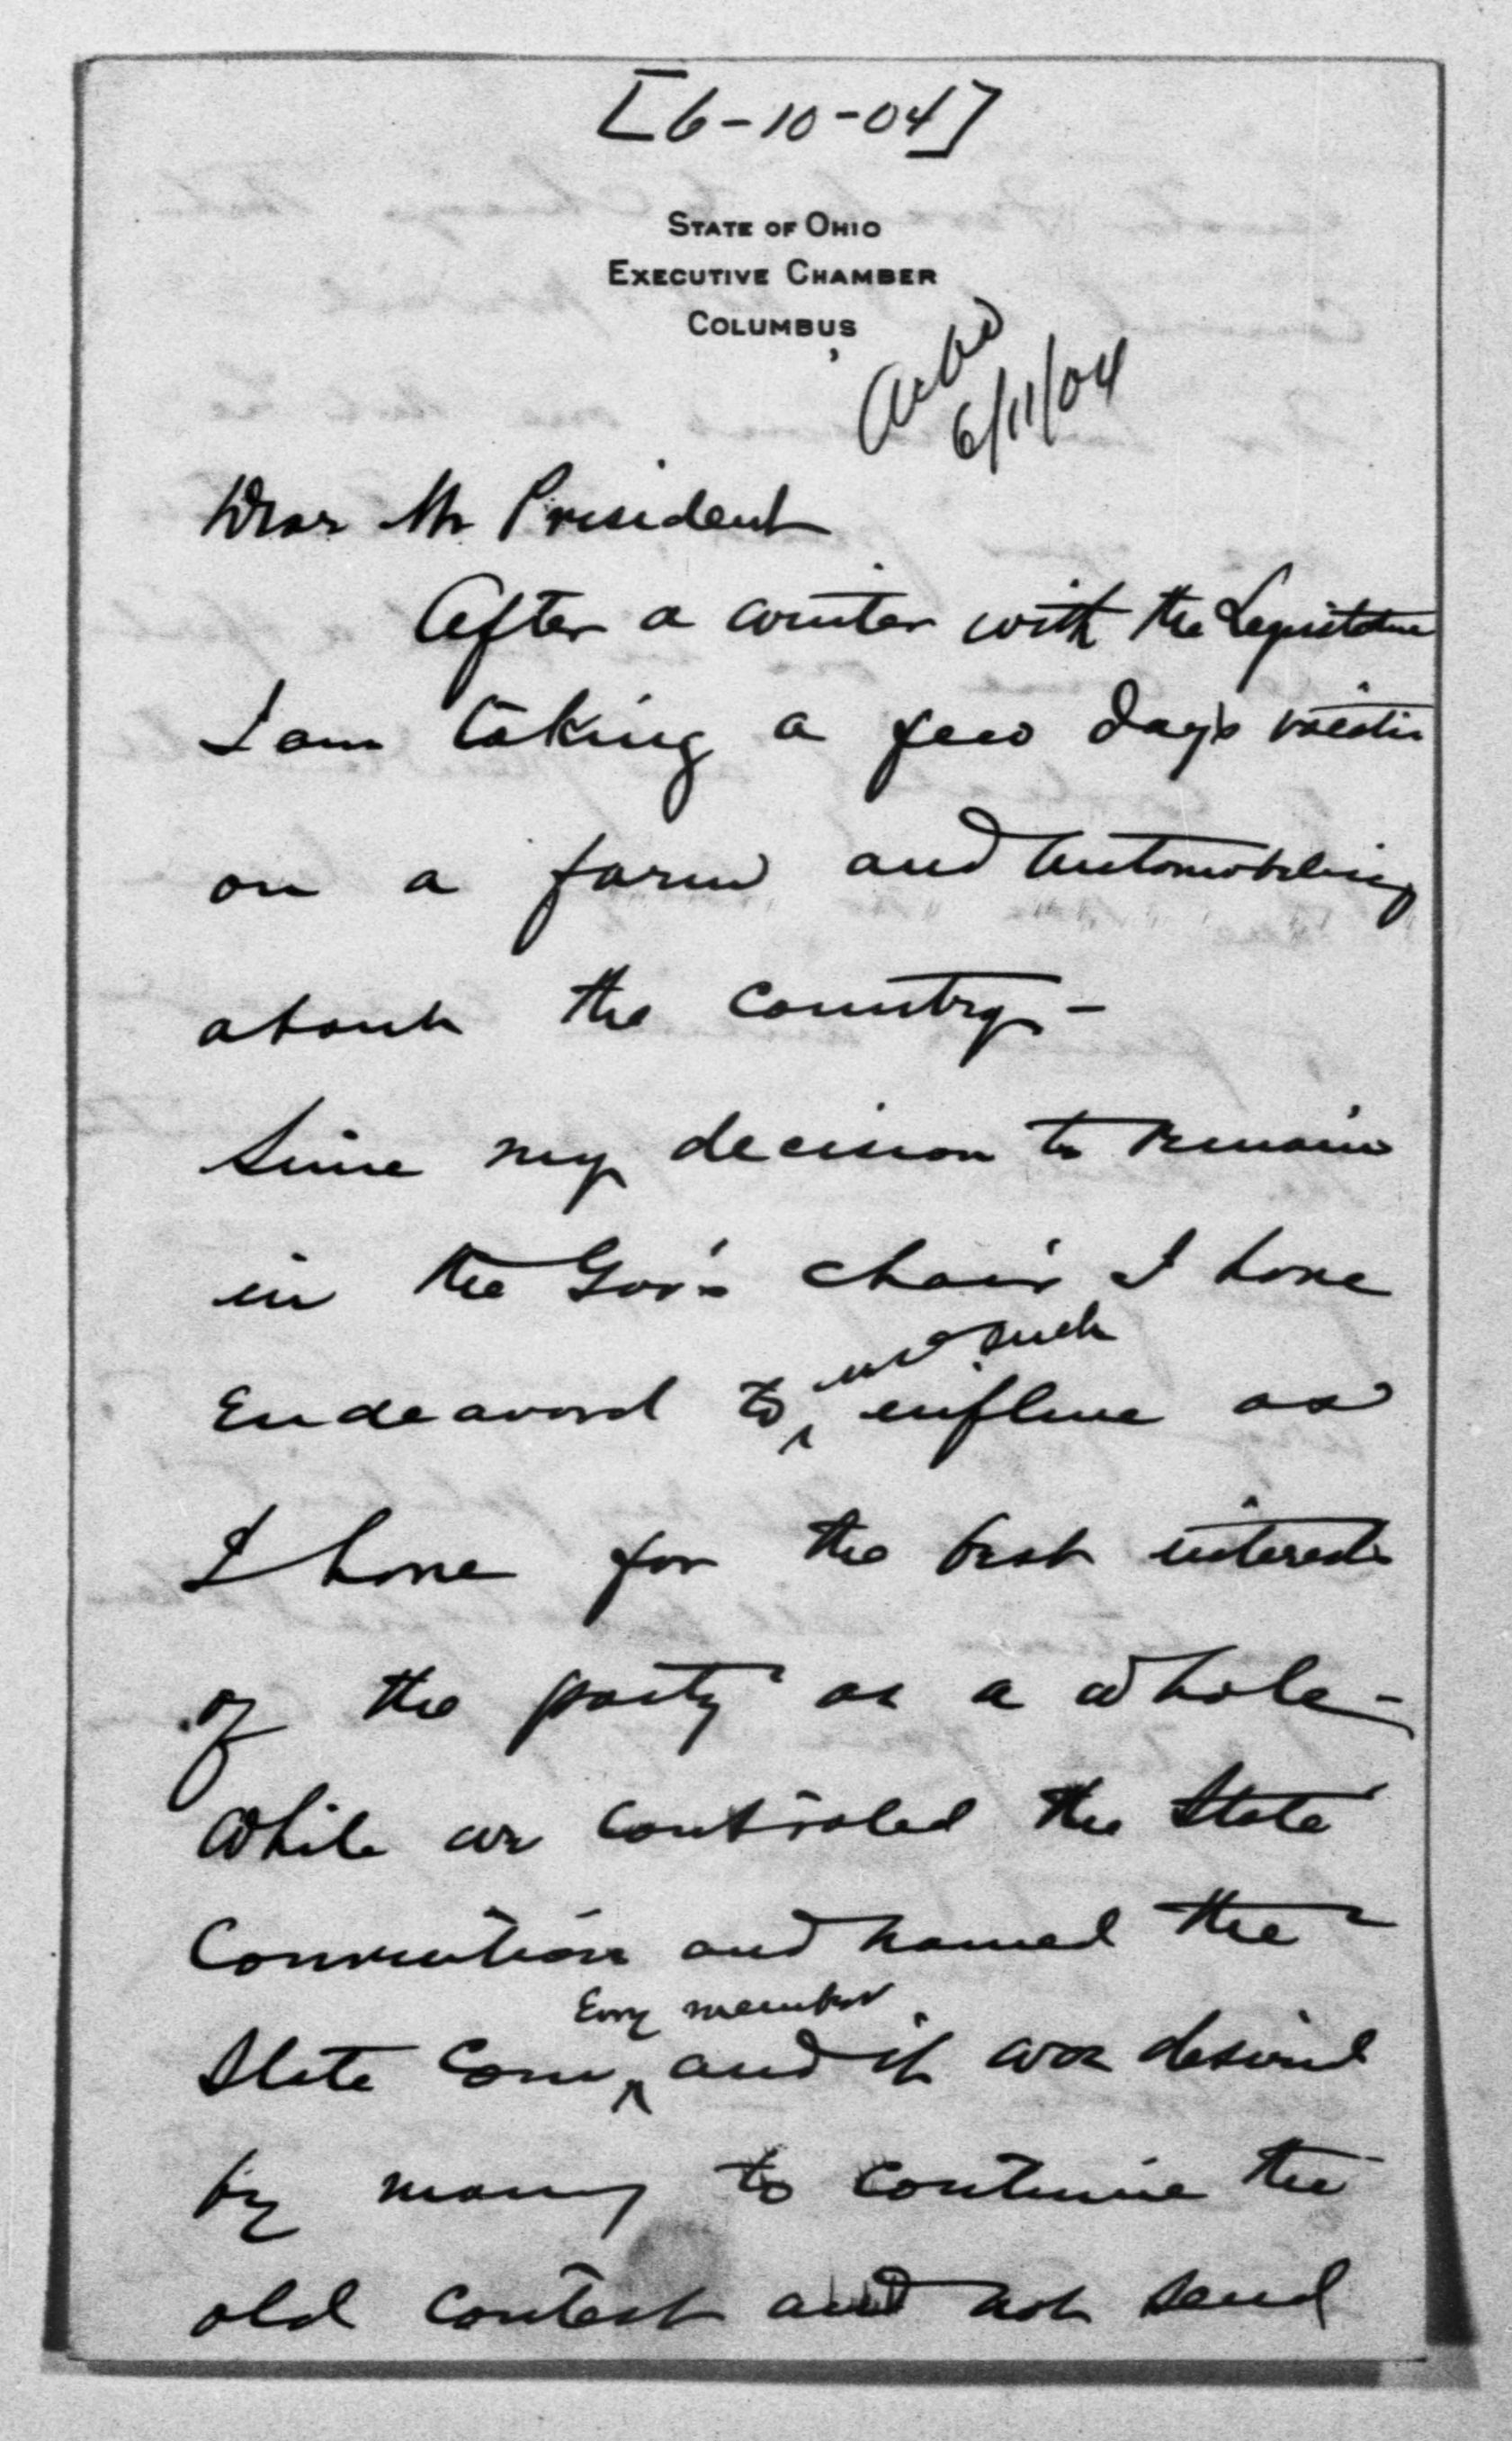 [6-10-04]
STATE OF OHIO
EXECUTIVE CHAMBER
COLUMBUS,
Ackd
6/11/04
Dear Mr President
After a winter with the Legislature
I am taking a few days vacation
on a farm and automobiling
about the country-
Since my decision to remain
in the Gov's chair I have
use such
Endeavord to influence as
I have for the best interests
of the party as a whole-
While we controled the State
Convention and named the
Every member
State Com, and it was desired
by many to continue the
old contest and not send